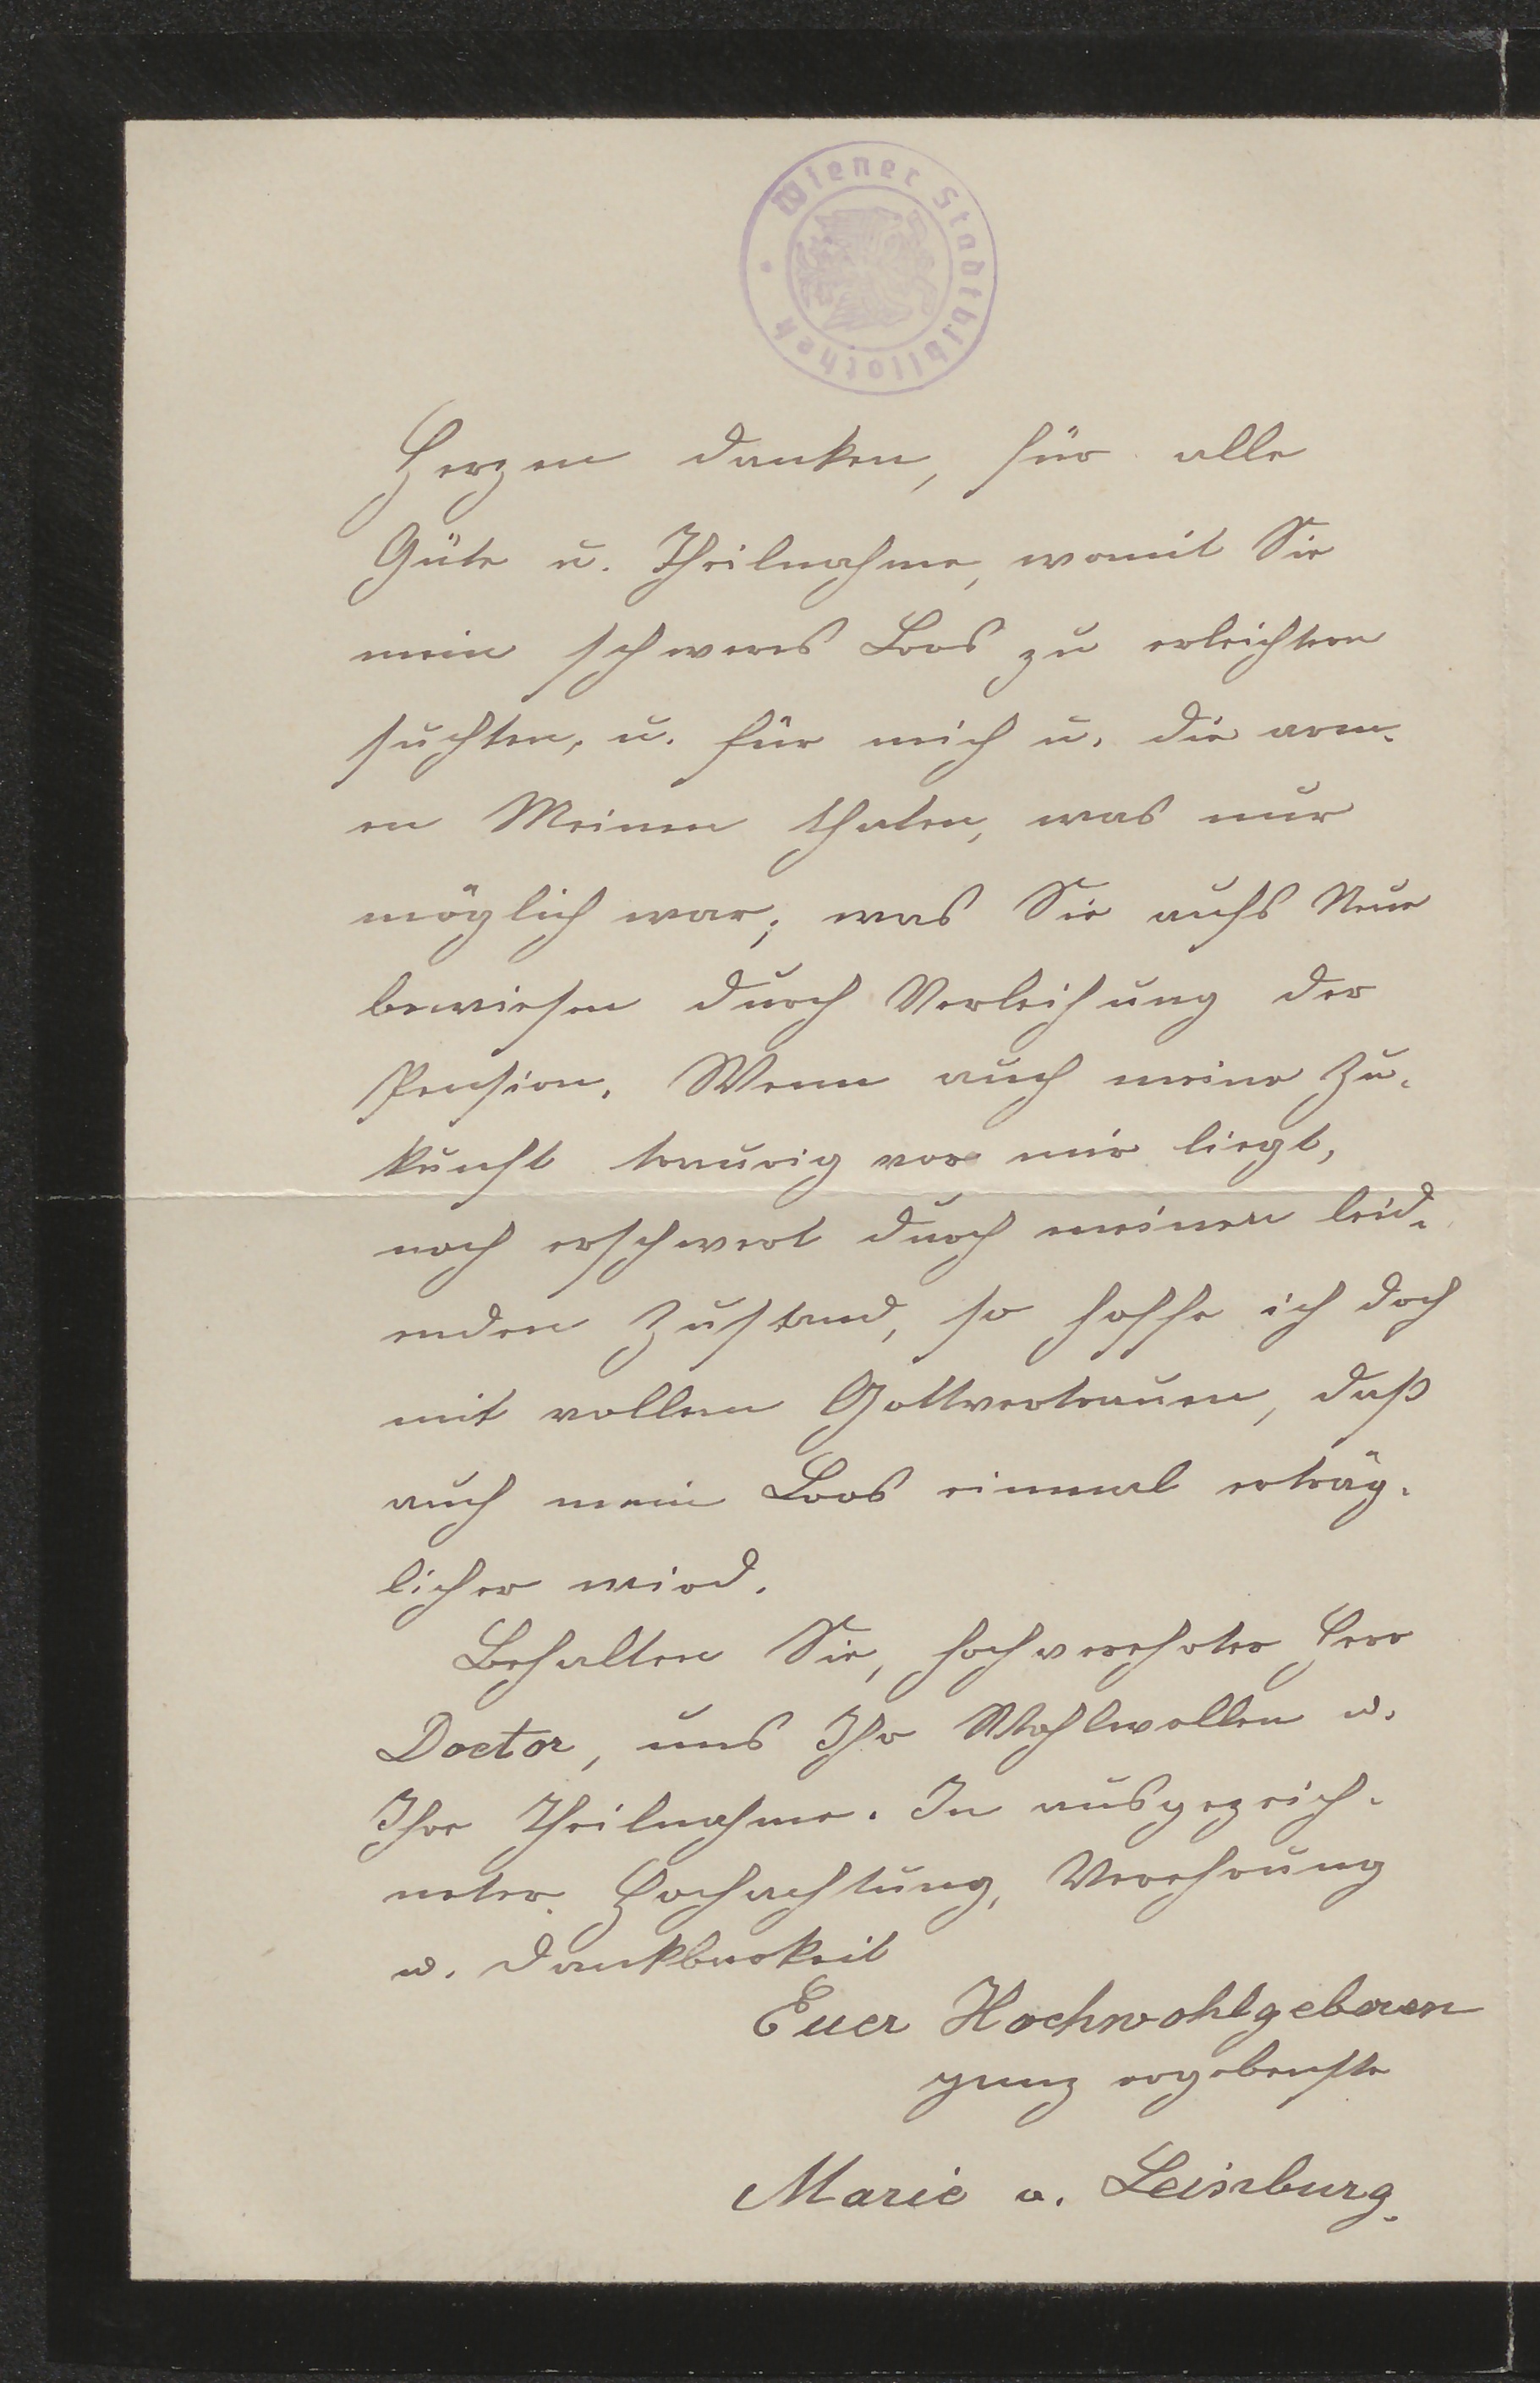 Wiener Stadtbibliothek
Herzen danken, für alle
Güte u. Theilnahme, womit Sie
mein schweres Loos zu erleichtern
suchten, u. für mich u. die arm-
en Meinen thaten, was nur
möglich war; was Sie aufs Neue
bewiesen durch Verleihung der
Pension. Wenn auch meine Zu-
kunft traurig vor mir liegt,
noch erschwert durch meinen leid-
enden Zustand, so hoffe ich doch
mit vollem Gottvertrauen, daß
auch mein Loos einmal erträg-
licher wird.
Behalten Sie, hochverehrter Herr
Doctor, uns Ihr Wohlwollen u.
Ihre Theilnahme. In ausgezeich-
neter Hochachtung, Verehrung
u. Dankbarkeit
Euer Hochwohlgeboren
ganz ergebenste
Marie v. Leinburg.